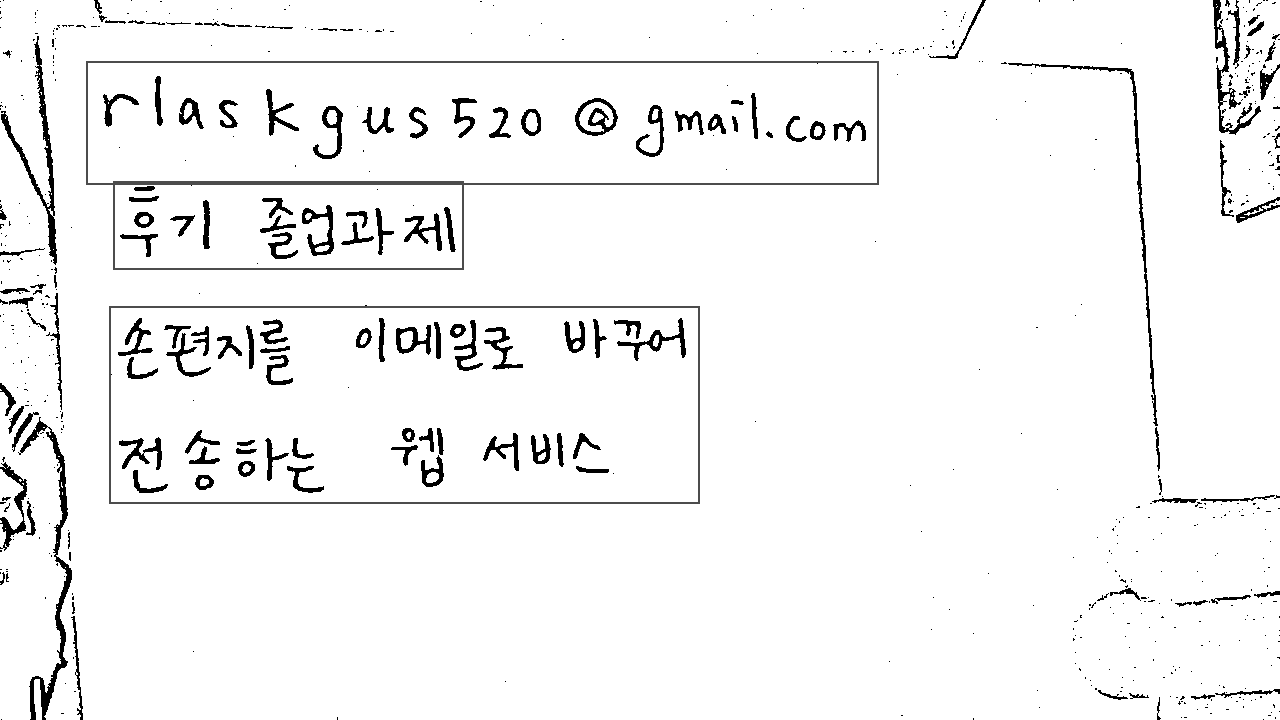 rlaskgus520@gmail.com
후기 졸업과제
손편지를 이메일로 바꾸어
전송하는 웹 서비스